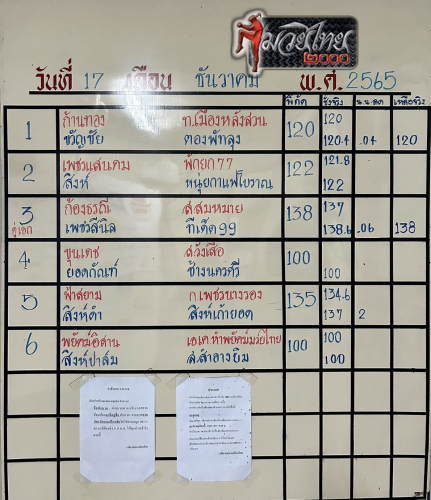 มวยไทย
๒๐๐๐
วันที่ 17 เดือน ธันวาคม พ.ศ. 2565
พิกัด ชั่งจริง น.น.ลด เหลือจริง
1 ก้านทอง ท.เมืองหลังสวน 120 120
ขวัญชัย ตองพัทลุง 120.4 .04 120
2 เพชรแสนคม พักยก77 122 121.8
สิงห์ หนุ่ยกาแฟโบราณ 122
3 ก้องธรณี ส.สมหมาย 138 137
คู่เอก เพชรสีนิล ทีเด็ด99 138.6 .06 138
4 ขุนเดช ส.วังเสือ 100
ยอดกัณฑ์ ช้างนครศรี 100
5 ฟ้าสยาม ก.เพชรนางรอง 135 134.6
สิงห์ดำ สิงห์เก้ายอด 137 2
6 พยัคฆ์อีสาน เอ.เค.ทำพยัคฆ์มวยไทย 100 100
สิงห์ปาล์ม ส.สำอางยิม 100